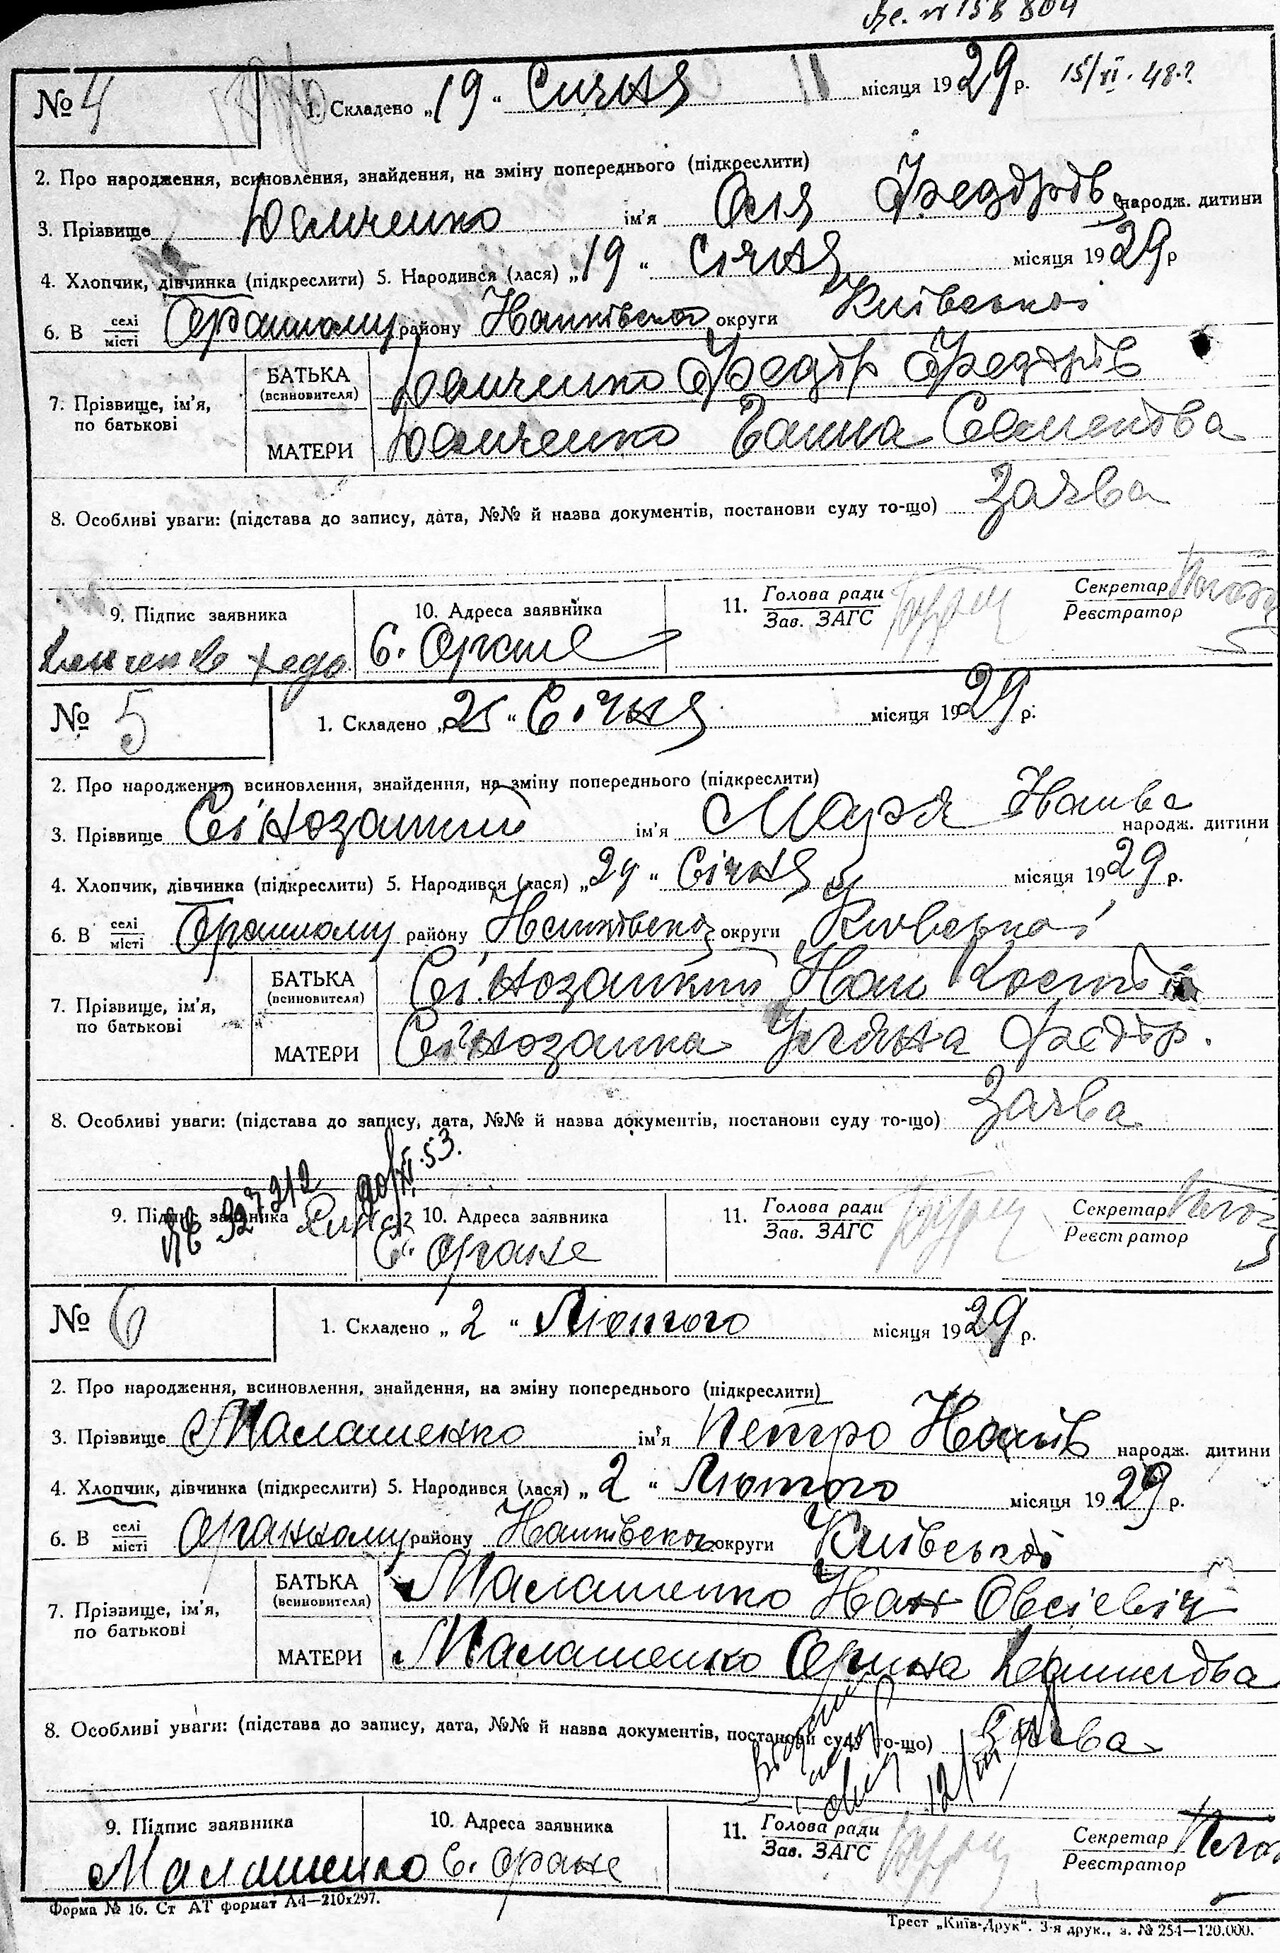 15/VI. 48.?
№ 4
1. Складено „19“ Січня місяця 1929 р.
2. Про народження, всиновлення, знайдення, на зміну попереднього (підкреслити)
3. Прізвище Юемченко ім'я Оля Федорів народж. дитини
4. Хлопчик, дівчинка (підкреслити) 5. Народився (лася) „19“ Січня місяця 1929 р
6. В селі місті Ораному району Іванківсько округи Київської
7. Прізвище, ім'я, по батькові
БАТЬКА (всиновителя) Федір Федорів
МАТЕРИ Ганна Семенова
8. Особливі уваги: (підстава до запису, дата, №№ й назва документів, постанови суду то-що) Заява
9. Підпис заявника
10. Адреса заявника
С. Оране
11. Голова ради Зав. ЗАГС
Секретар Реєстратор
№ 5
1. Складено „25“ Січня місяця 1929 р.
2. Про народження, всиновлення, знайдення, на зміну попереднього (підкреслити)
3. Прізвище Сінозацкий ім'я Марія Іванва народж. дитини
4. Хлопчик, дівчинка (підкреслити) 5. Народився (лася) „24“ Січня місяця 1929 р.
6. В селі місті Ораному району Іванківсько округи Київської
7. Прізвище, ім'я, по батькові
БАТЬКА (всиновителя) Сінозацкий Іван Кост
МАТЕРИ Сінозацка Уляна Федір.
8. Особливі уваги: (підстава до запису, дата, №№ й назва документів, постанови суду то-що) Заява
9. Підпис заявника
10. Адреса заявника
С. Оране
11. Голова ради Зав. ЗАГС
Секретар Реєстратор
№ 6
1. Складено „2“ Лютого місяця 1929 р.
2. Про народження, всиновлення, знайдення, на зміну попереднього (підкреслити)
3. Прізвище Малашенко ім'я Петро Іванів народж. дитини
4. Хлопчик, дівчинка (підкреслити) 5. Народився (лася) „2“ Лютого місяця 1929 р.
6. В селі місті Ораному району Іванківсько округи Київської
7. Прізвище, ім'я, по батькові
БАТЬКА (всиновителя) Малашенко Іван Овсієвіч
МАТЕРИ Малашенко Орина
8. Особливі уваги: (підстава до запису, дата, №№ й назва документів, постанови суду то-що) Заява
9. Підпис заявника
10. Адреса заявника
Малашенко
С. Оране
11. Голова ради Зав. ЗАГС
Секретар Реєстратор
Форма № 16. Ст АТ формат А4—210x297.
Трест „Київ-Друк“. 3-я друк., з. № 254—120.000.